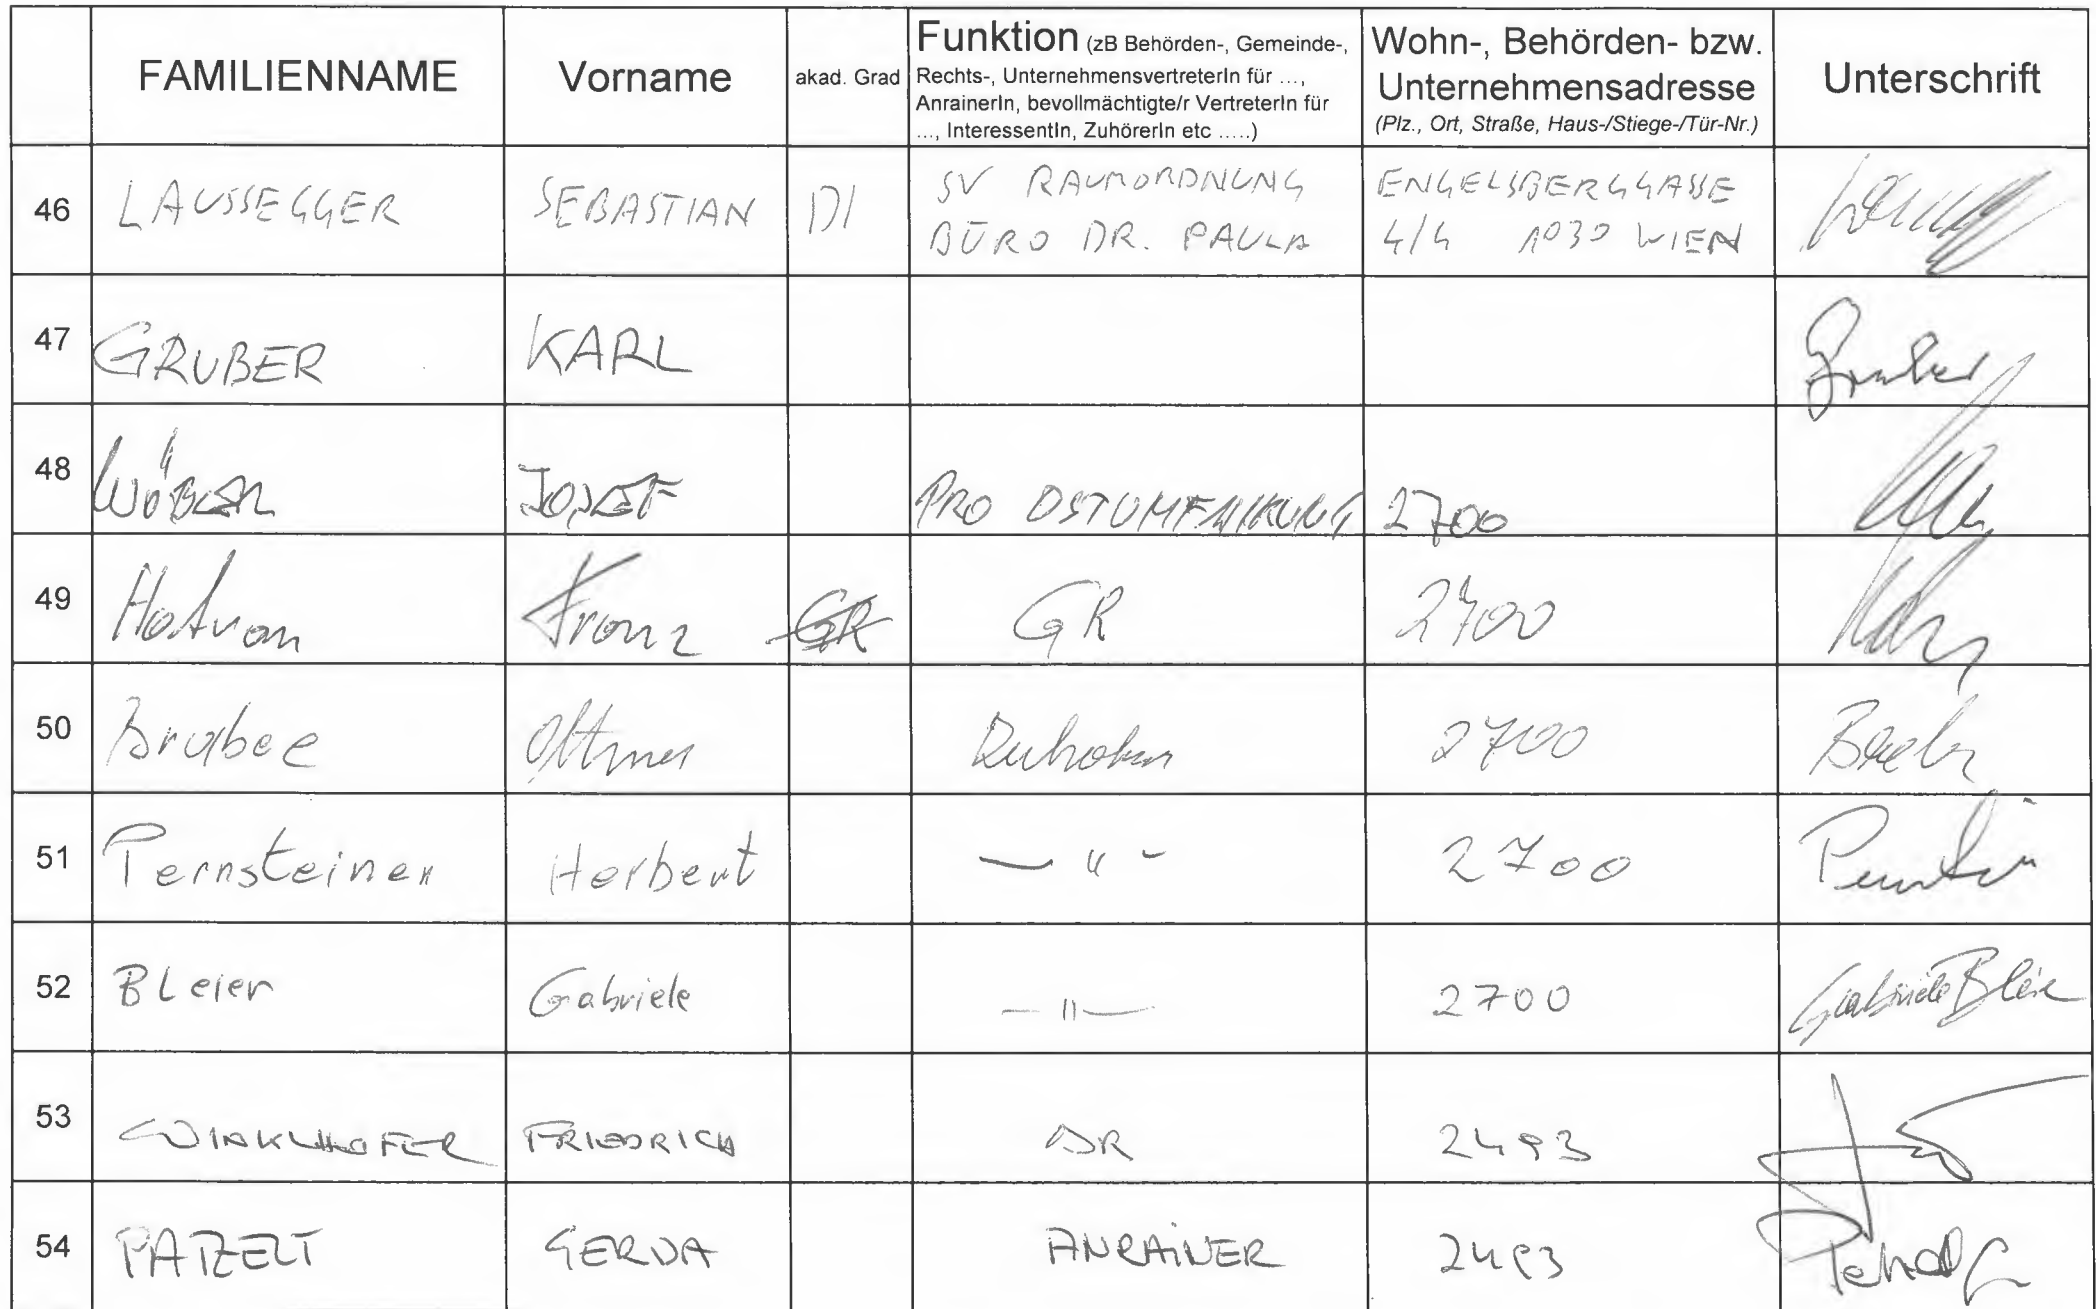 FAMILIENNAME
Vorname
akad. Grad
Funktion (zB Behörden-, Gemeinde-,
Rechts-, UnternehmensvertreterIn für ...,
AnrainerIn, bevollmächtigte/r VertreterIn für
..., InteressentIn, ZuhörerIn etc .....)
Wohn-, Behörden- bzw.
Unternehmensadresse
(Plz., Ort, Straße, Haus-/Stiege-/Tür-Nr.)
Unterschrift
46
LAUSSEGGER
SEBASTIAN
DI
SV RAUMORDNUNG
BÜRO DR. PAULA
ENGELSBERGGASSE
4/4 1030 WIEN
47
GRUBER
KARL
Gruber
48
JOSEF
PRO
2700
49
Hatvan
Franz
GR
GR
2700
50
Brabec
Ottmar
2700
51
Pernsteiner
Herbert
— " -
2700
52
Bleier
Gabriele
— " —
2700
Gabriele Bleier
53
WINKLHOFER
FRIEDRICH
2493
54
PATZELT
GERDA
ANRAINER
2493